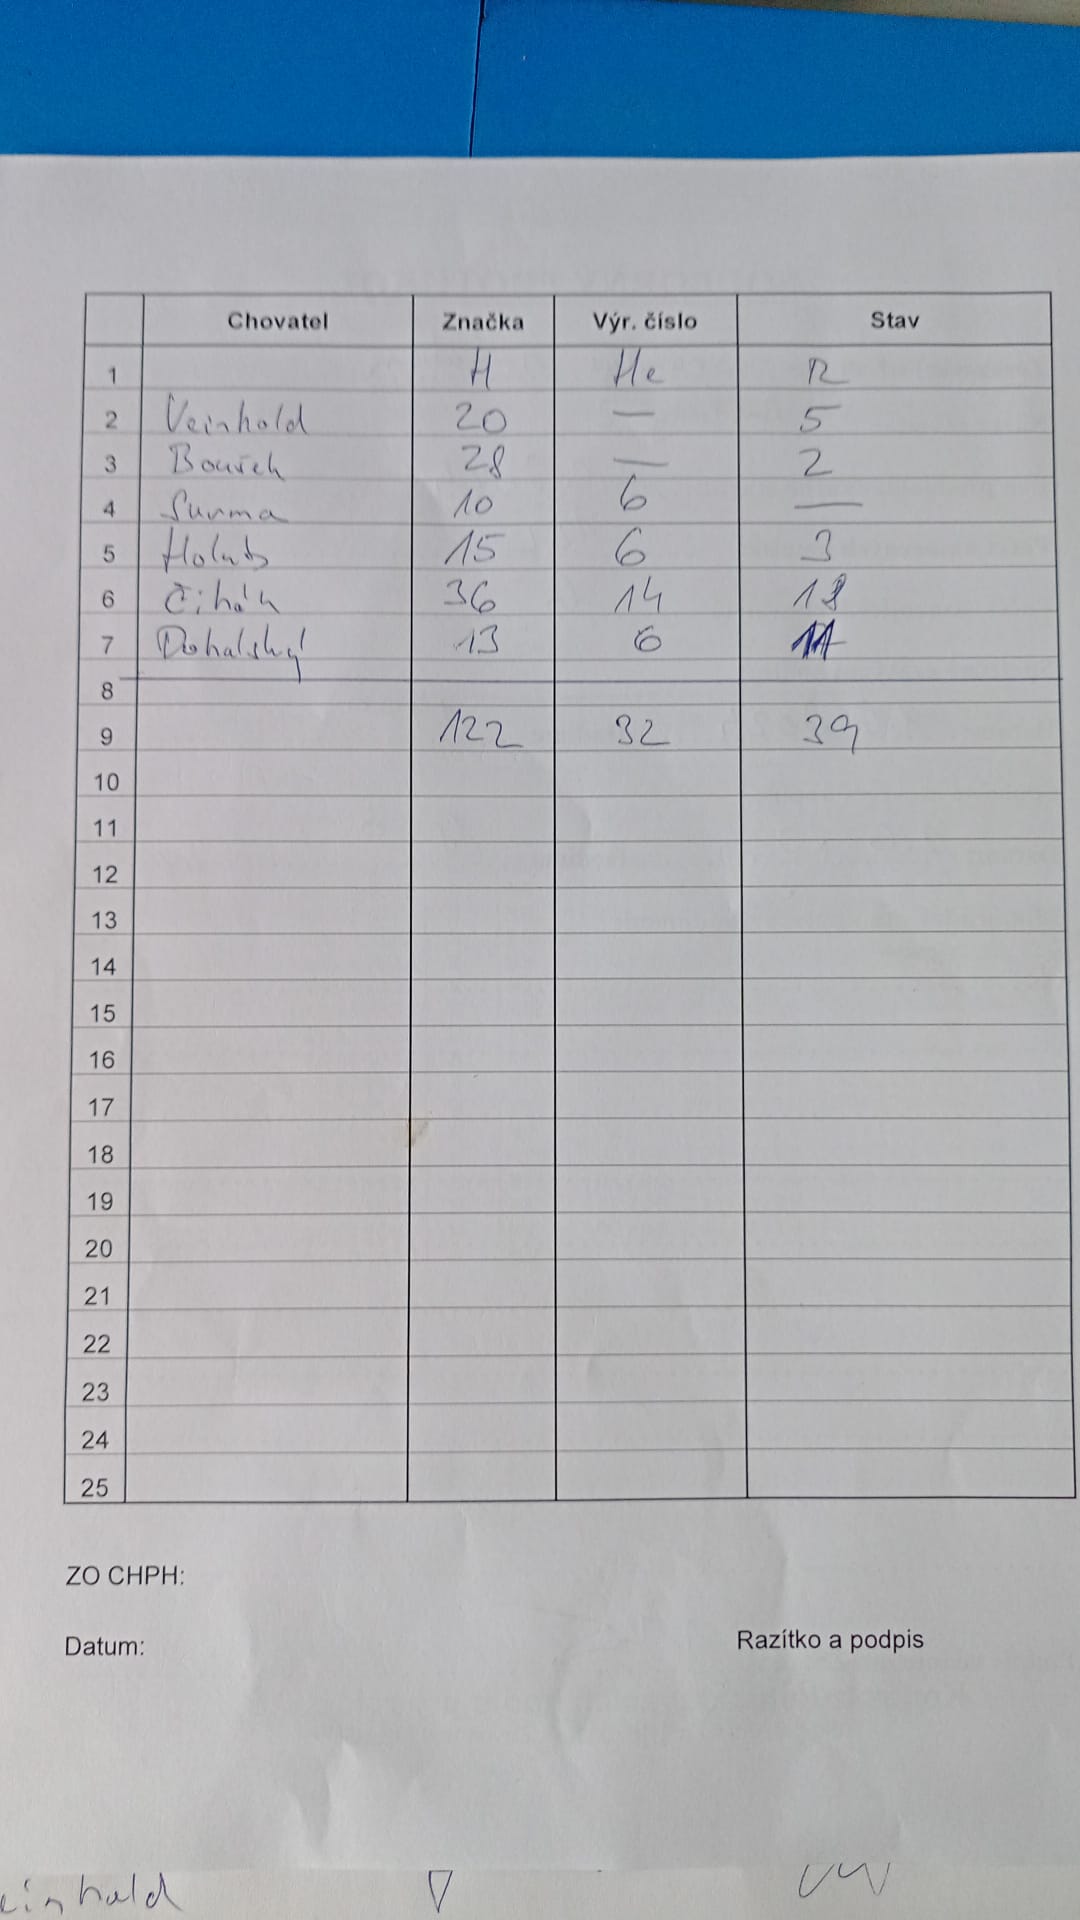 Chovatel Značka Výr. číslo Stav
1 H He R
2 Veinhold 20 — 5
3 Bouřek 28 — 2
4 Surma 10 6 —
5 Holub 15 6 3
6 Čihák 36 14 18
7 Dohalský 13 6 11
8
9 122 32 39
10
11
12
13
14
15
16
17
18
19
20
21
22
23
24
25
ZO CHPH:
Datum: Razítko a podpis
einhold